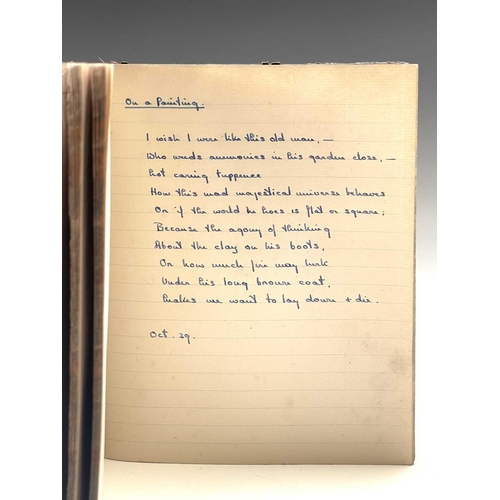 On a Painting.
I wish I were like this old man, —
Who weeds anemonies in his garden close, —
Not caring tuppence
How this mad majestical universe behaves
Or if the world he hoes is flat or square;
Because the agony of thinking
About the clay on his boots,
Or how much fire may lurk
Under his long brown coat,
Makes me want to lay down + die.
Oct. 39.